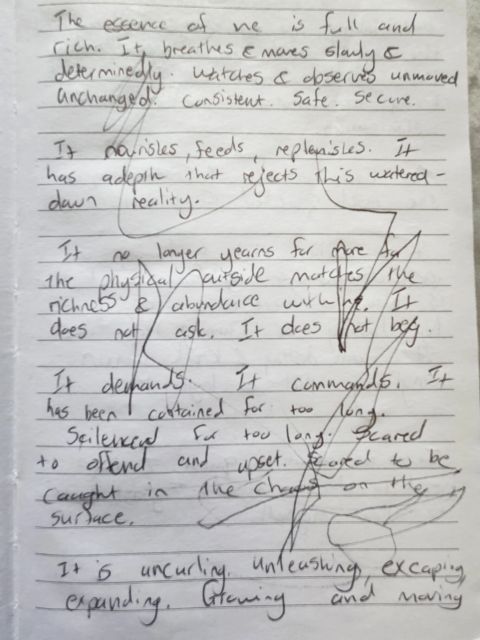 The essence of me is full and
rich. It breathes & moves slowly &
determinedly. Watches & observes unmoved
unchanged. Consistent. Safe. Secure.
It nourisles, feeds, replenisles. It
has a depth that rejects this watered-
down reality.
It no longer yearns for more for
the physical outside matches the
richness & abundance within me. It
does not ask. It does not beg.
It demands. It commands. It
has been contained for too long.
Scilenced for too long. Scared
to offend and upset. Scared to be
caught in the chaos on the
surface.
It is uncurling, unleashing, excaping,
expanding. Growing and moving